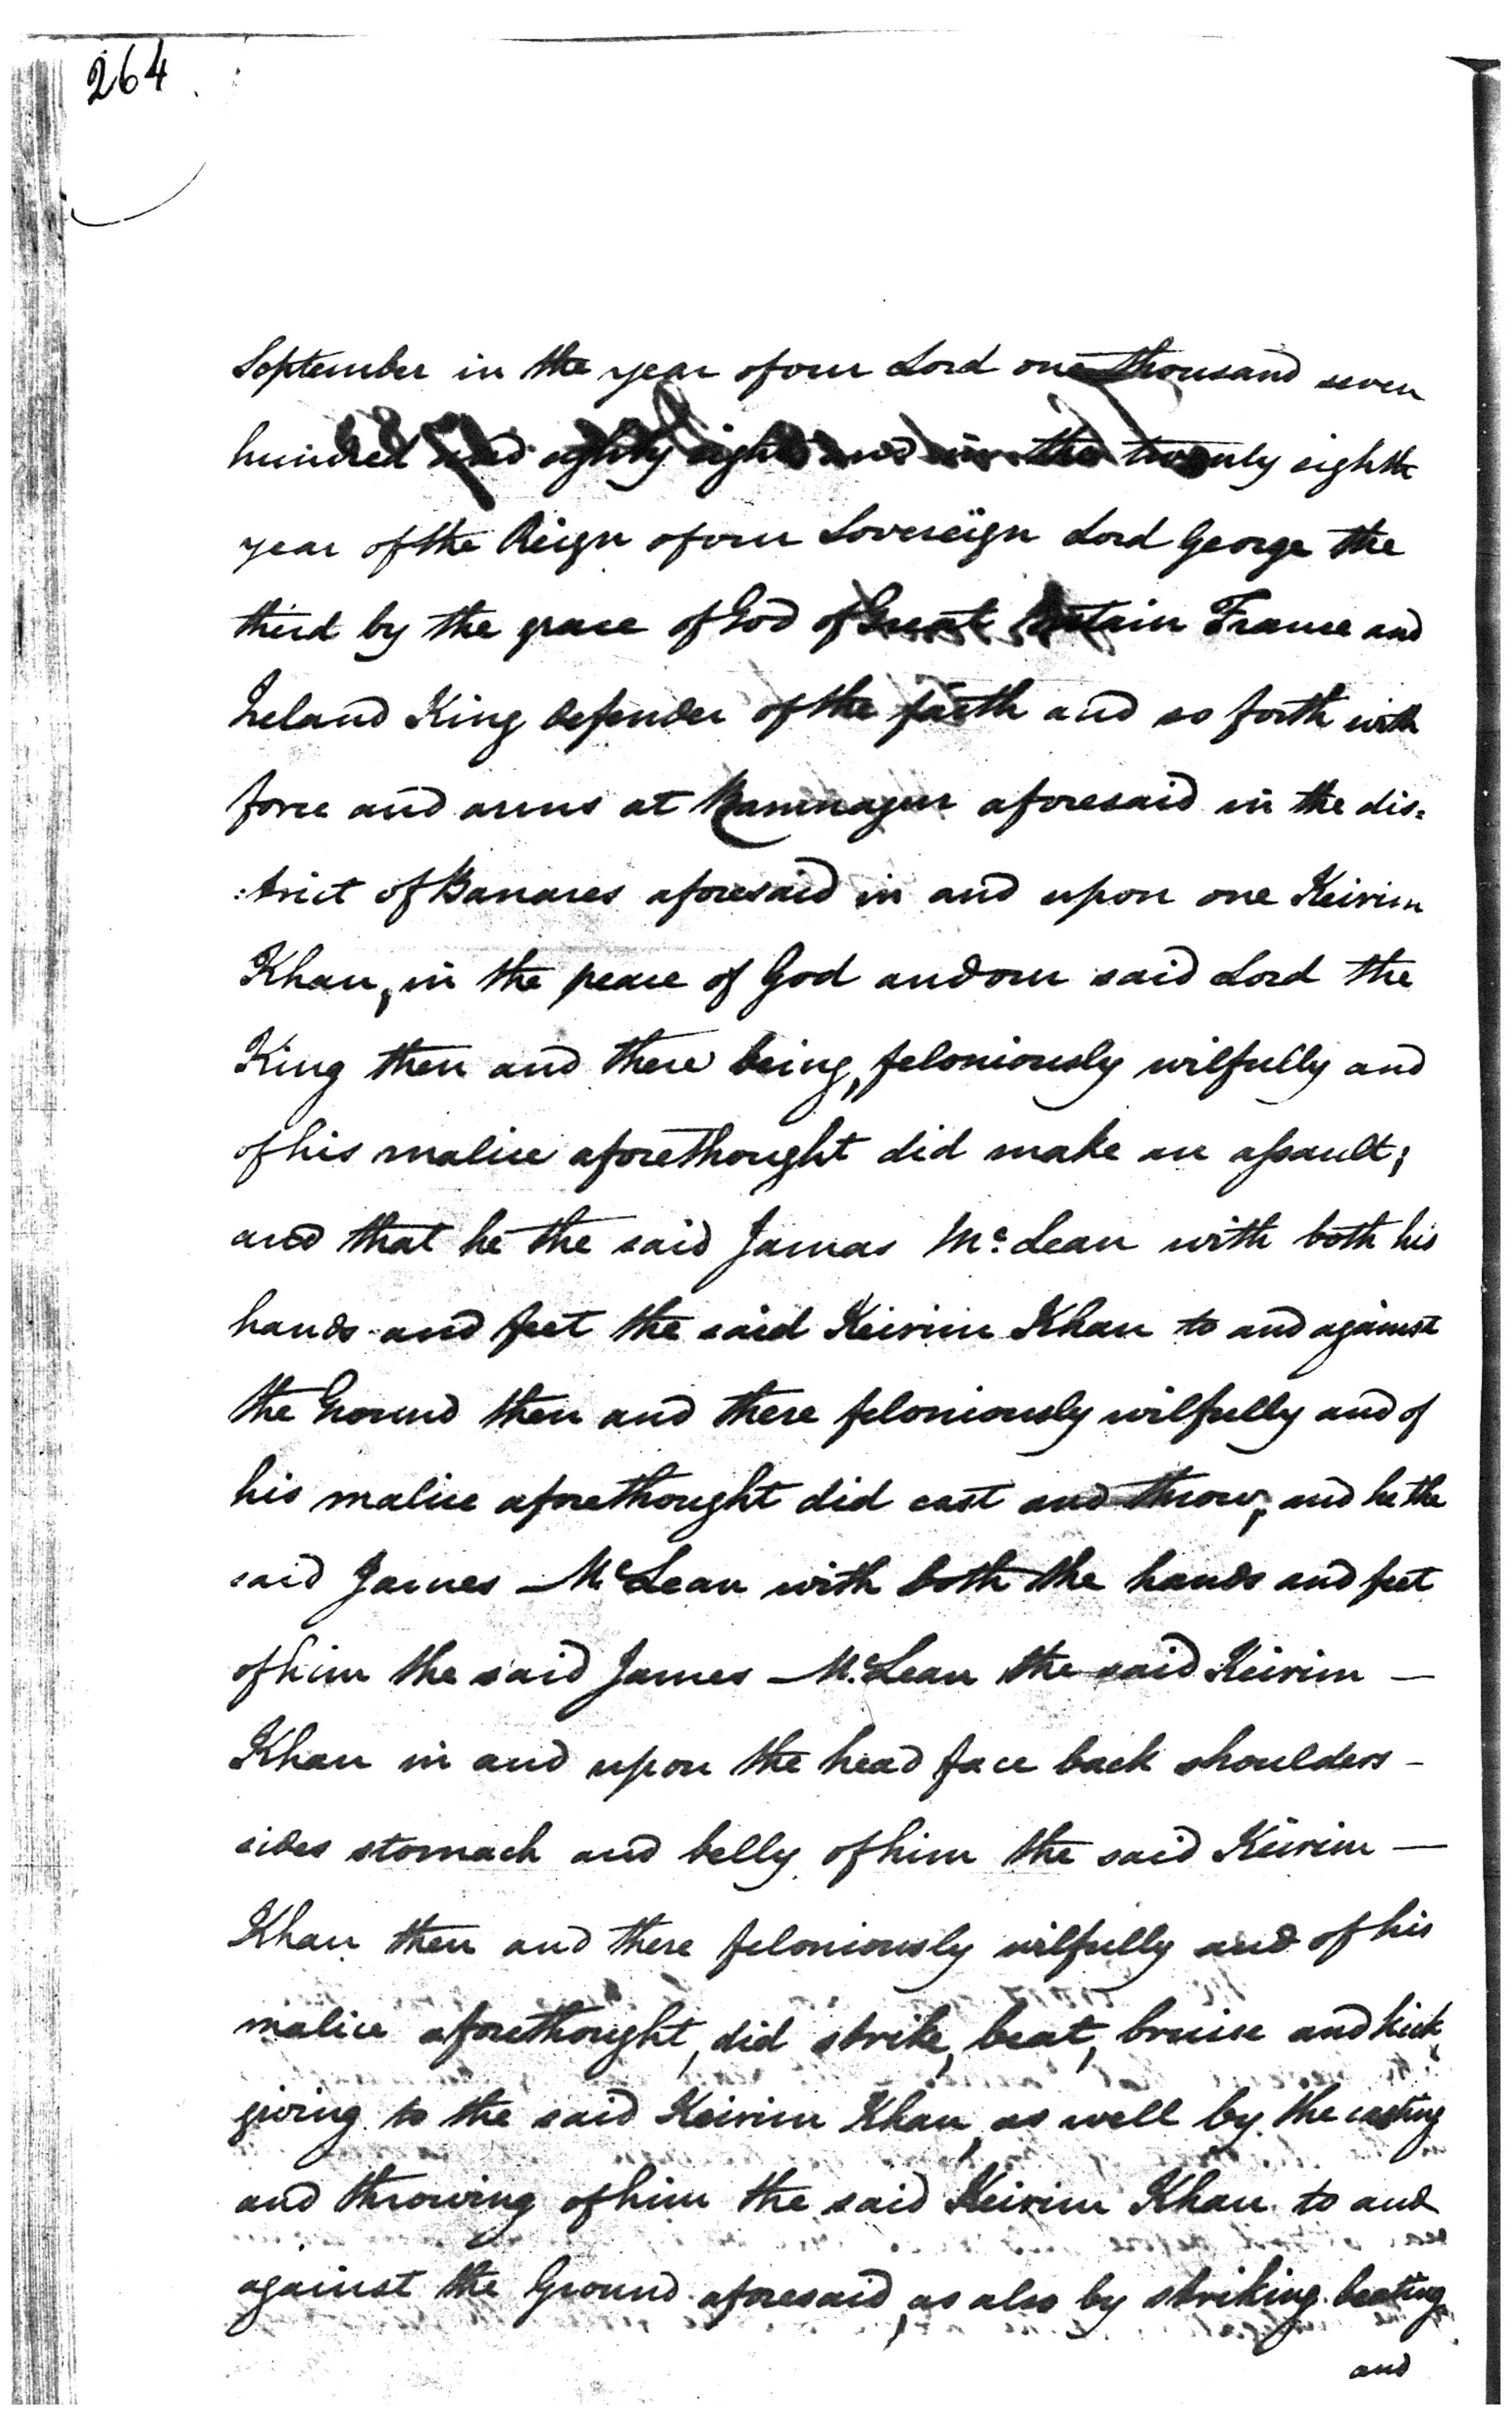 264
September in the year of our Lord one thousand seven
hundred and eighty eight and in the twenly eighth
year of the Reign of our Sovereign Lord George the
third by the grace of God of Great Britain France and
Ireland King defender of the faith and so forth with
force and arms at Ramnagur aforesaid in the dis=
:trict of Banares aforesaid in and upon one Keirim
Khan, in the peace of God and our said Lord the
King then and there being, feloniously wilfully and
of his malice aforethought did make an assault;
and that he the said Jamas Mc Lean with both his
hands and feet the said Keirim Khan to and against
the Ground then and there feloniously wilfully and of
his malice aforethought did cast and throw, and he the
said James McLean with both the hands and feet
of him the said James McLean the said Keirim —
Khan in and upon the head face back shoulders –
sides stomach and belly of him the said Keirim —
Khan then and there feloniously wilfully and of his
malice aforethought, did strike, beat, bruise and kick,
giving to the said Keirim Khan, as well by the casting
and throwing of him the said Keirim Khan to and
against the Ground aforesaid, as also by striking beating
and